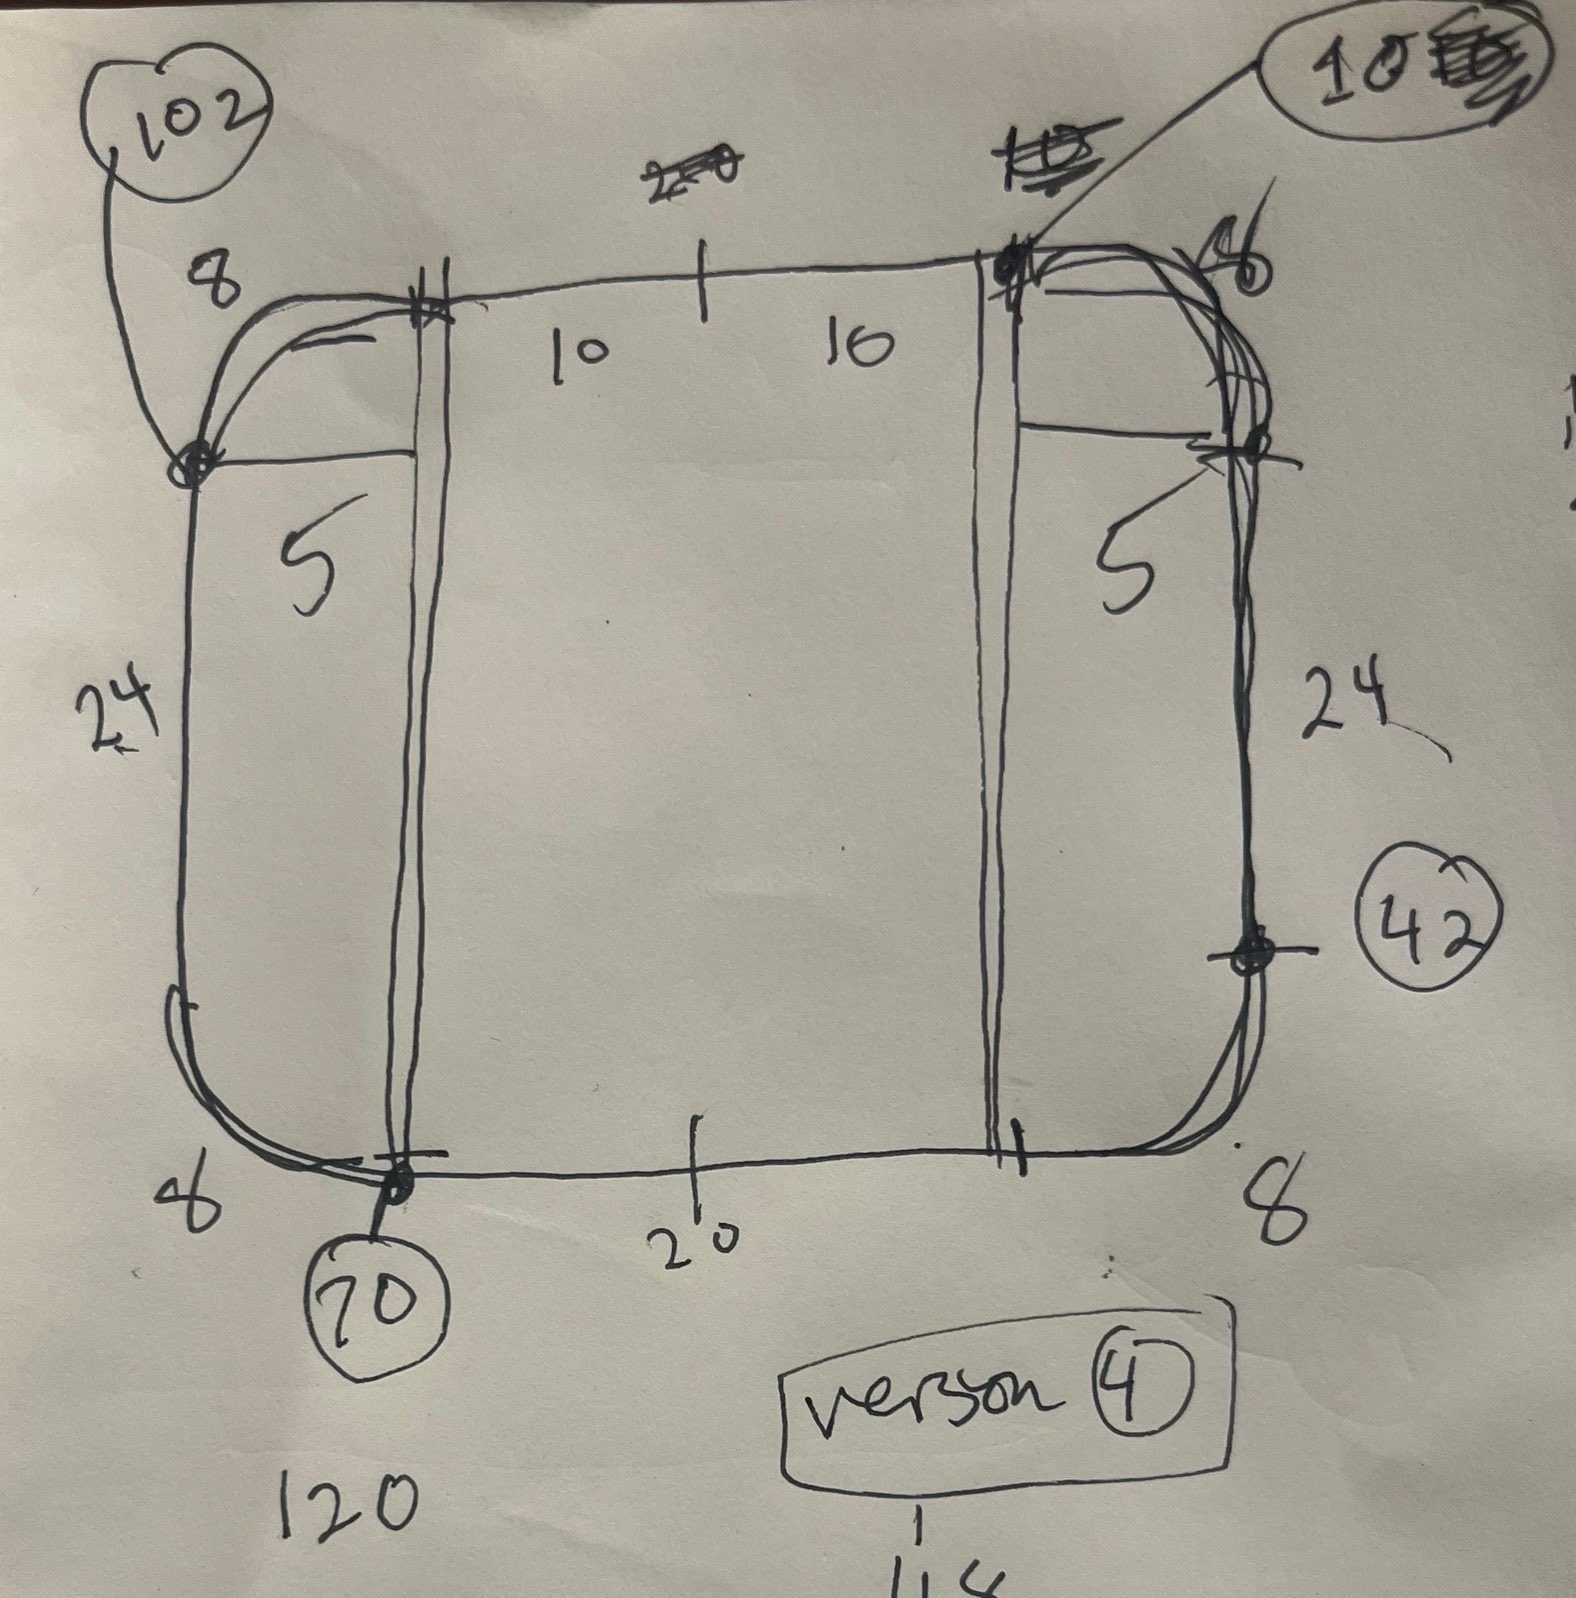 102
10
8
8
10
10
5
5
24
24
42
8
8
20
70
version 4
120